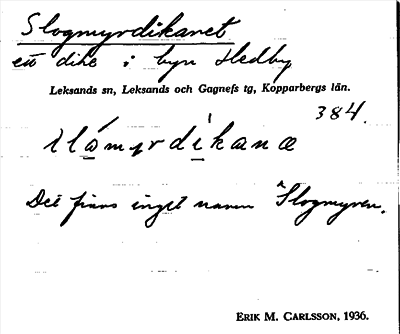 Slogmyrdikanet
ett dike i byn Hedby
Leksands sn, Leksands och Gagnefs tg, Kopparbergs län.
384.
Det finns inget namn Slogmyren.
ERIK M. CARLSSON, 1936.